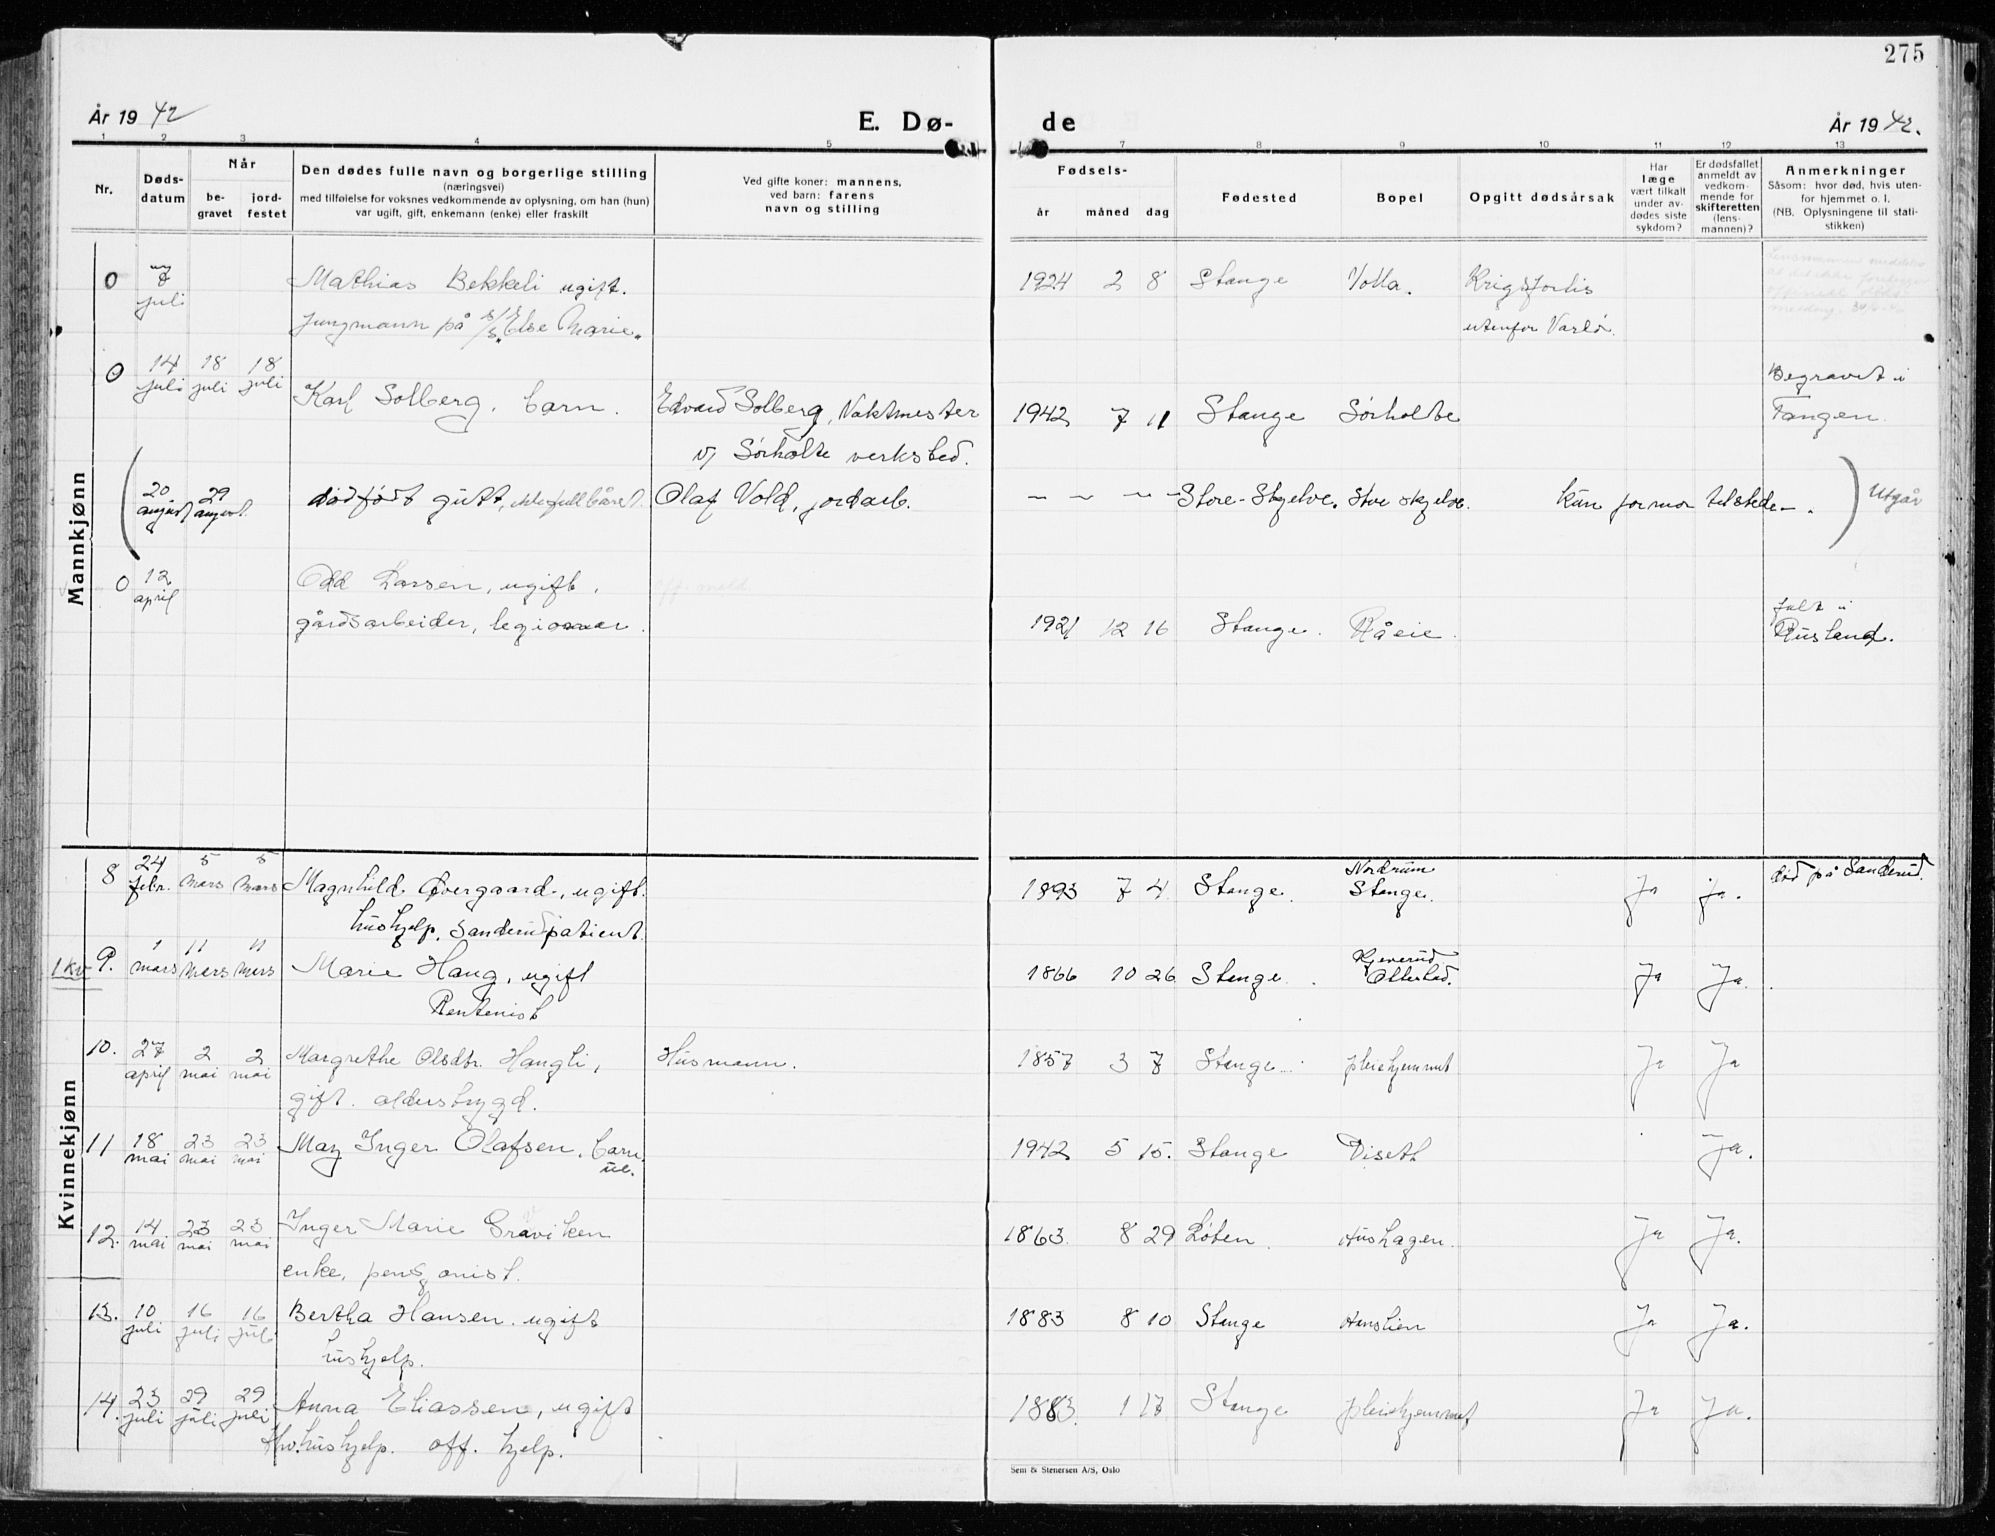 275
År 1942
E. Dø-
de
År 1942.
1 2 3 4 5
7 8 9 10 11 12 13
Nr.
Døds-
datum
Når
be-
gravet
jord-
festet
Den dødes fulle navn og borgerlige stilling
(næringsvei)
med tilføielse for voksnes vedkommende av oplysning, om han (hun)
var ugift, gift, enkemann (enke) eller fraskilt
Ved gifte koner: mannens,
ved barn: farens
navn og stilling
Fødsels-
år måned dag
Fødested
Bopel
Opgitt dødsårsak
Har
læge
vært tilkalt
under av-
dødes siste
sykdom?
Er dødsfallet
anmeldt av
vedkom-
mende for
skifteretten
(lens-
mannen)?
Anmerkninger
Såsom: hvor død, hvis uten-
for hjemmet o. l.
(NB. Oplysningene til stati-
stikken)
Mannkjønn
0 7 Mathias Bekkeli ugift. 1924 2 8 Stange Volla. Krigsforlis
juli Jungmann på s/s „Else Marie„ utenfor Vardø.
0 14 18 18 Karl Solberg, barn. Edvard Solberg, Vaktmester 1942 7 11 Stange Sörholte Begravet i
juli juli juli v/ Sörholte verksted. Tangen.
20 29 dødfødt gutt, ikke fullbåret. Olaf Vold, jordarb. — — — Store-Skjelve. Store skjelve. Kun jormor tilstede. Utgår
august august
0 12 Odd Larsen, ugift, off. meld
april gårdsarbeider, legionær. 1921 12 16 Stange. Råeie. falt i
Rusland.
Kvinnekjønn
8 24 5 5 Magnhild Øvergaard, ugift. 1893 7 4 Stange. Nordrum Ja Ja. død på Sanderud.
febr. mars mars hushjelp, Sanderud patient. Stange.
1 Kv 9. 1 11 11 Marie Haug, ugift 1866 10 26 Stange. Kjeverud Ja Ja.
mars mars mars Rentenist Ottestad.
10. 27 2 2 Margrethe Olsdtr. Haugli, Husmann. 1857 3 7 Stange. pleiehjemmet Ja Ja
april mai mai gift. alderstrygd.
11 18 23 23 May Inger Olafsen, barn 1942 5 15. Stange Diseth Ja.
mai mai mai ue.
12. 14 23 23 Inger Marie Graviken 1863. 8 29 Løten. Hushagen. Ja Ja.
mai mai mai enke, pensjonist.
13. 10 16 16 Bertha Hansen. ugift 1883 8 10 Stange Hanslien Ja Ja.
juli juli juli hushjelp.
14. 23 29 29 Anna Eliassen, ugift 1883. 1 17 Stange pleiehjemmet Ja Ja.
juli juli juli fhv. hushjelp. off. hjelp.
Sem & Stenersen A/S, Oslo